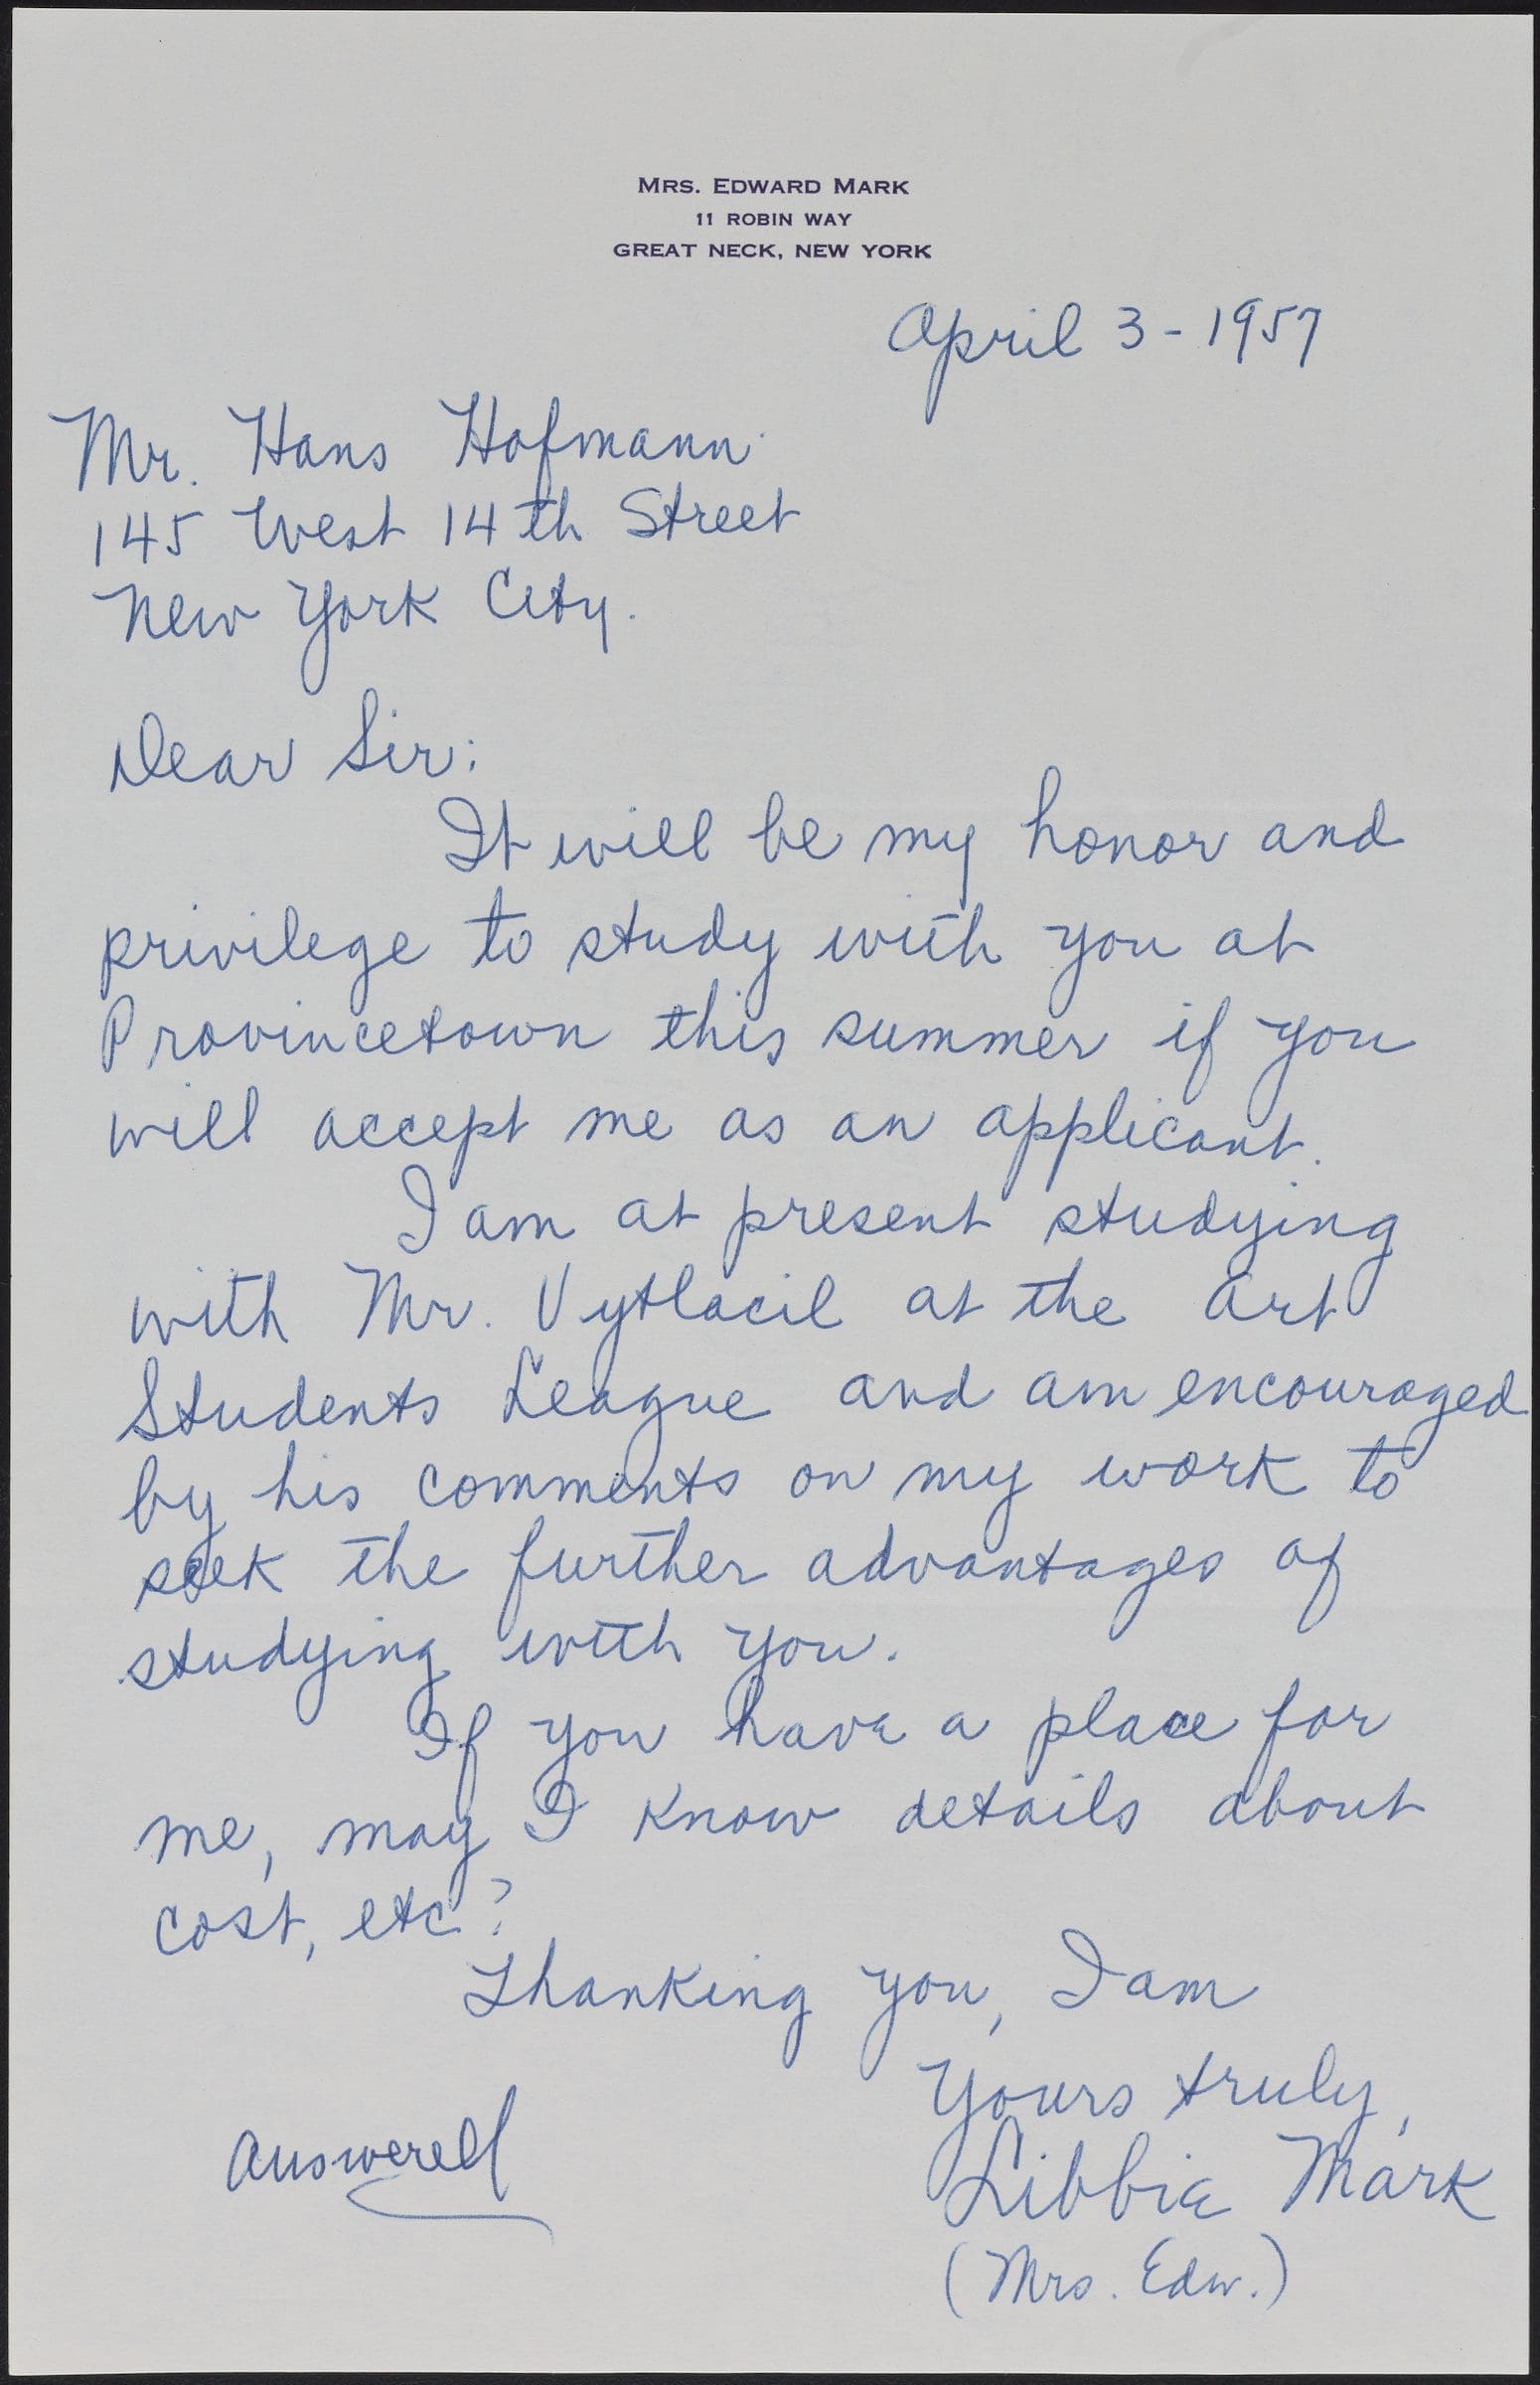 MRS. EDWARD MARK
11 ROBIN WAY
GREAT NECK, NEW YORK
April 3 - 1957
Mr. Hans Hofmann
145 West 14th Street
New York City.
Dear Sir:
It will be my honor and
privilege to study with you at
Provincetown this summer if you
will accept me as an applicant.
I am at present studying
with Mr. Vytlacil at the Art
Students League and am encouraged
by his comments on my work to
seek the further advantages of
studying with you.
If you have a place for
me, may I know details about
cost, etc?
Thanking you, I am
Yours truly,
Libbie Mark
(Mrs. Edw.)
answered